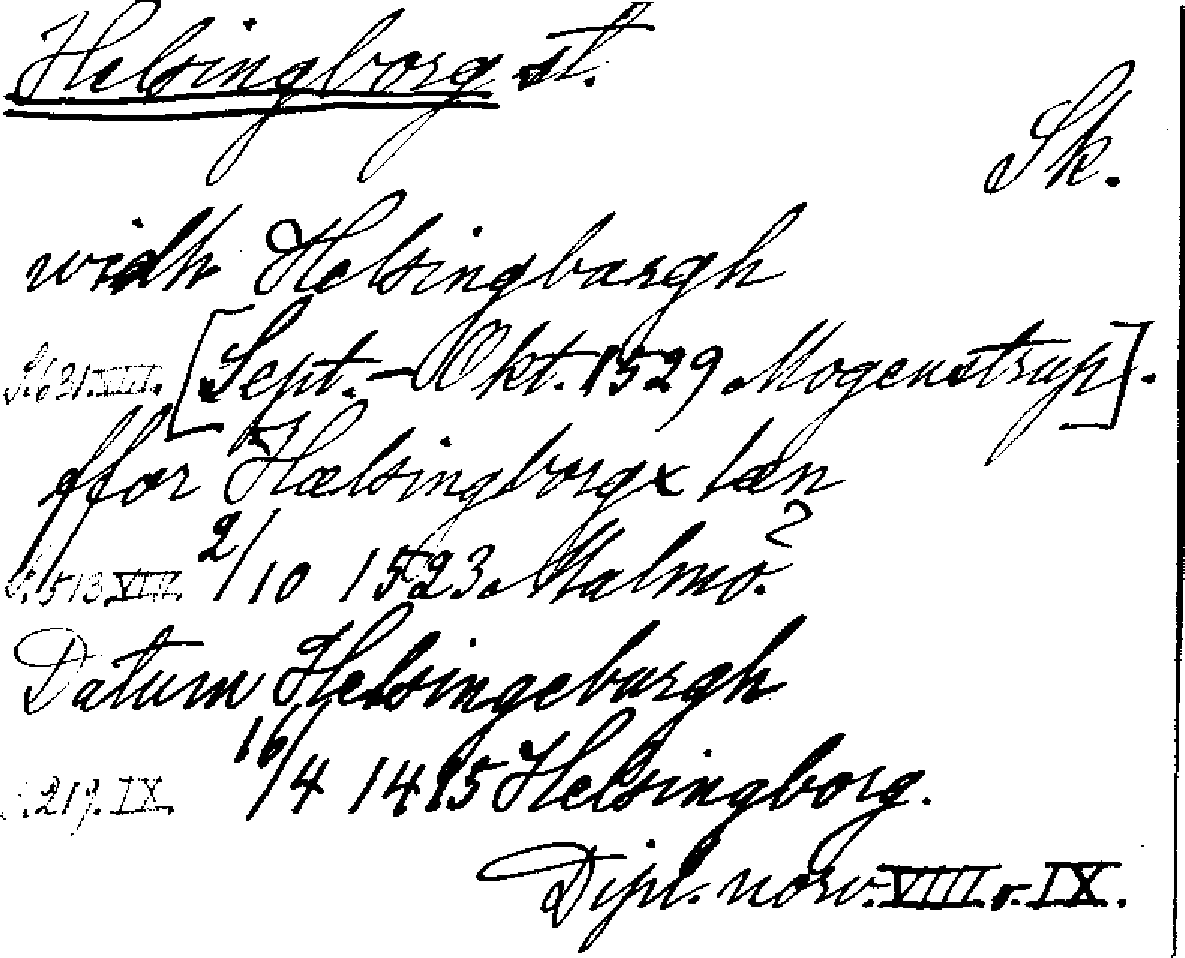 Helsingborg st.
Sk.
widh Helsingbargh
S. 631. VIII. [Sept.-Okt. 1529 Mogenstrup].
ffor Hælsingborgx læn
S. 513 VIII. 2/10 1523 Malmö?
Datum Helsingeburgh
S. 219. IX. 16/4 1415 Helsingborg.
Dipl. norv. VIII o. IX.